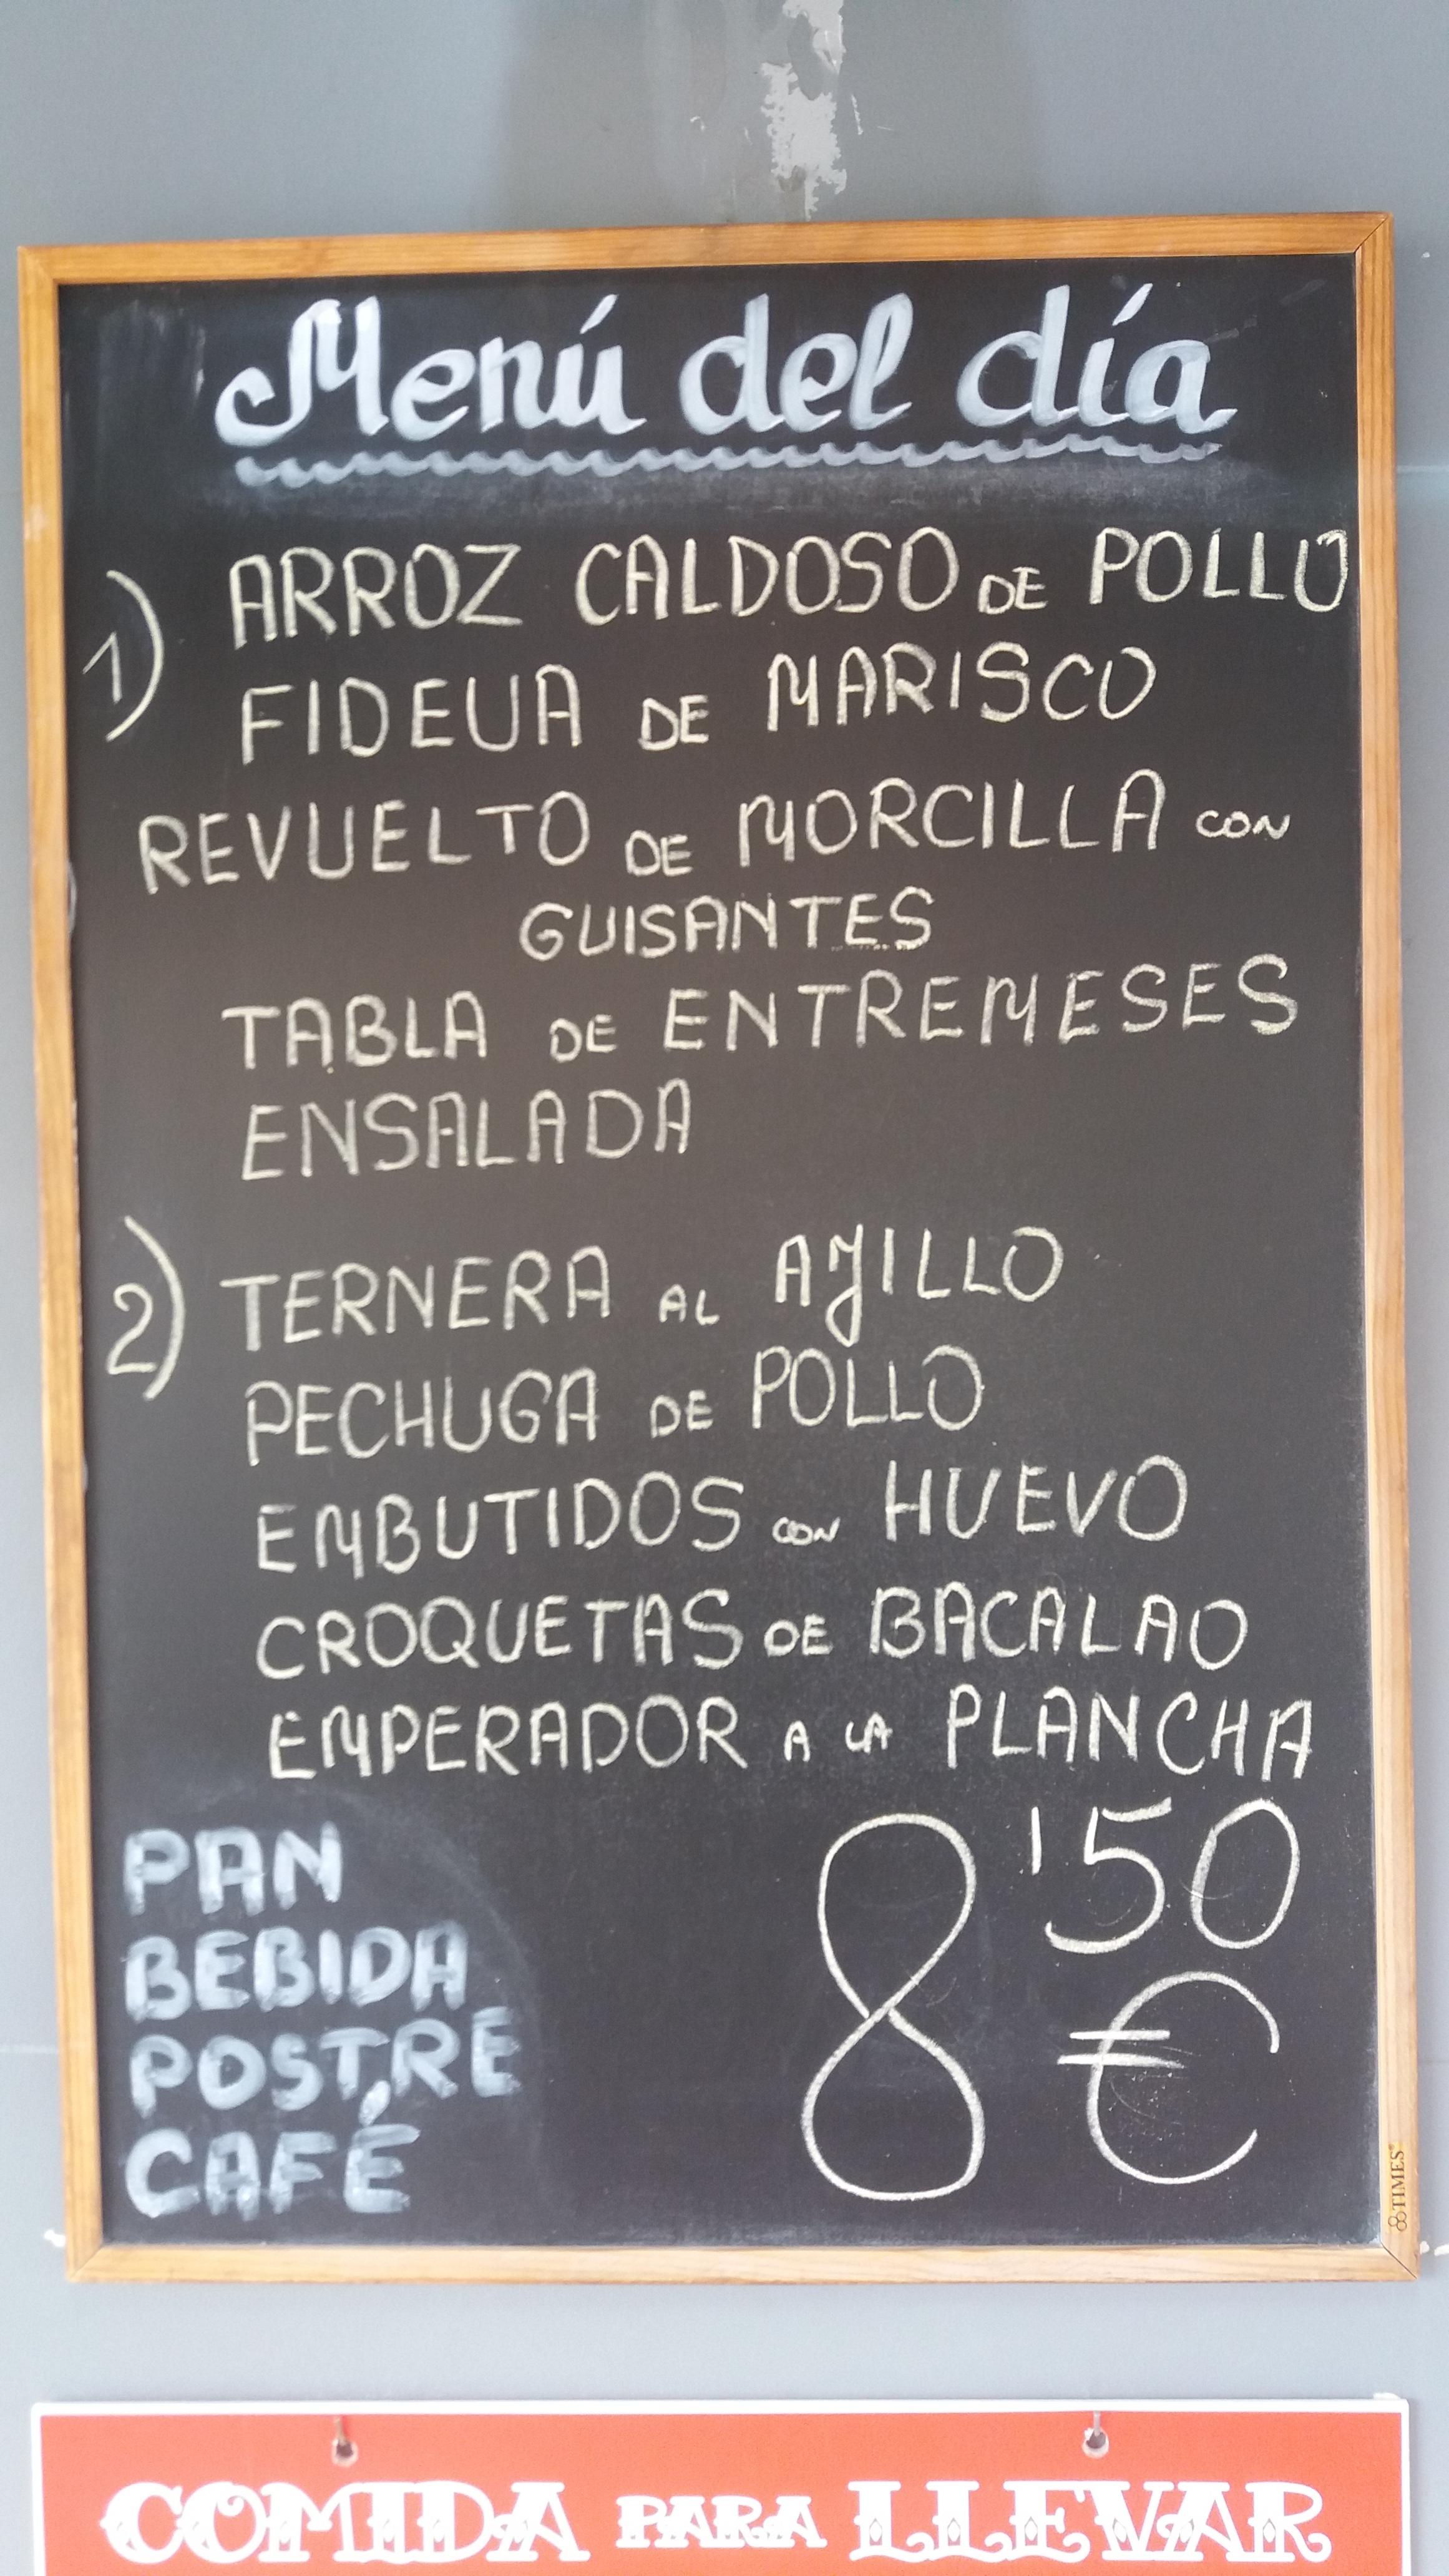 Menú del día
1) ARROZ CALDOSO DE POLLO
FIDEUA DE MARISCO
REVUELTO DE MORCILLA CON
GUISANTES
TABLA DE ENTREMESES
ENSALADA
2) TERNERA AL AJILLO
PECHUGA DE POLLO
EMBUTIDOS CON HUEVO
CROQUETAS DE BACALAO
EMPERADOR A LA PLANCHA
PAN
BEBIDA
POSTRE
CAFÉ
8'50
€
TIMES
COMIDA PARA LLEVAR